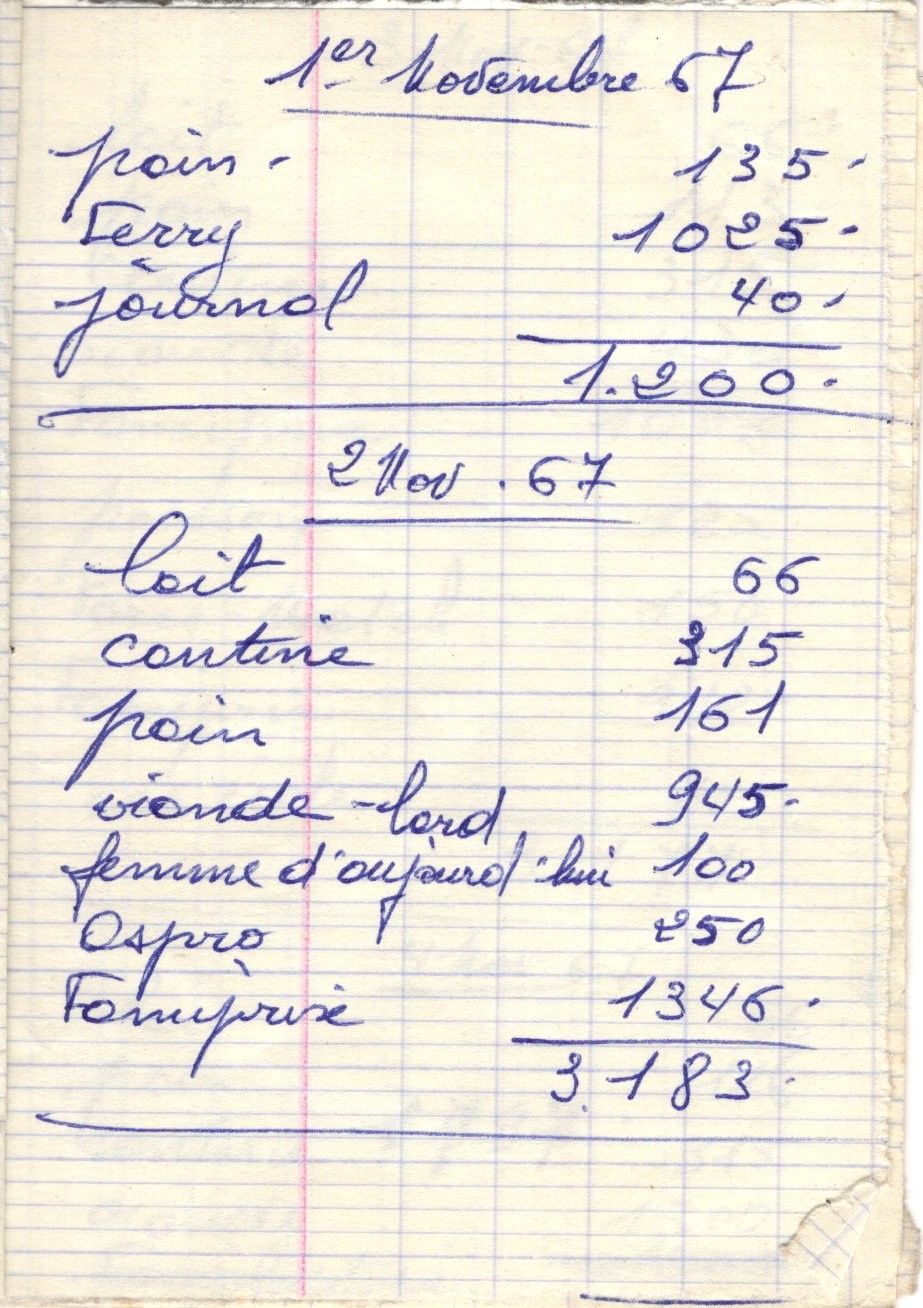 1er Novembre 67
pain - 135.
Ferry 1025.
journal 40.
1.200.
2 Nov. 67
lait 66
cantine 315
pain 161
viande - lard 945.
femme d'aujourd'hui 100
Aspro 250
Familprix 1346.
3.183.